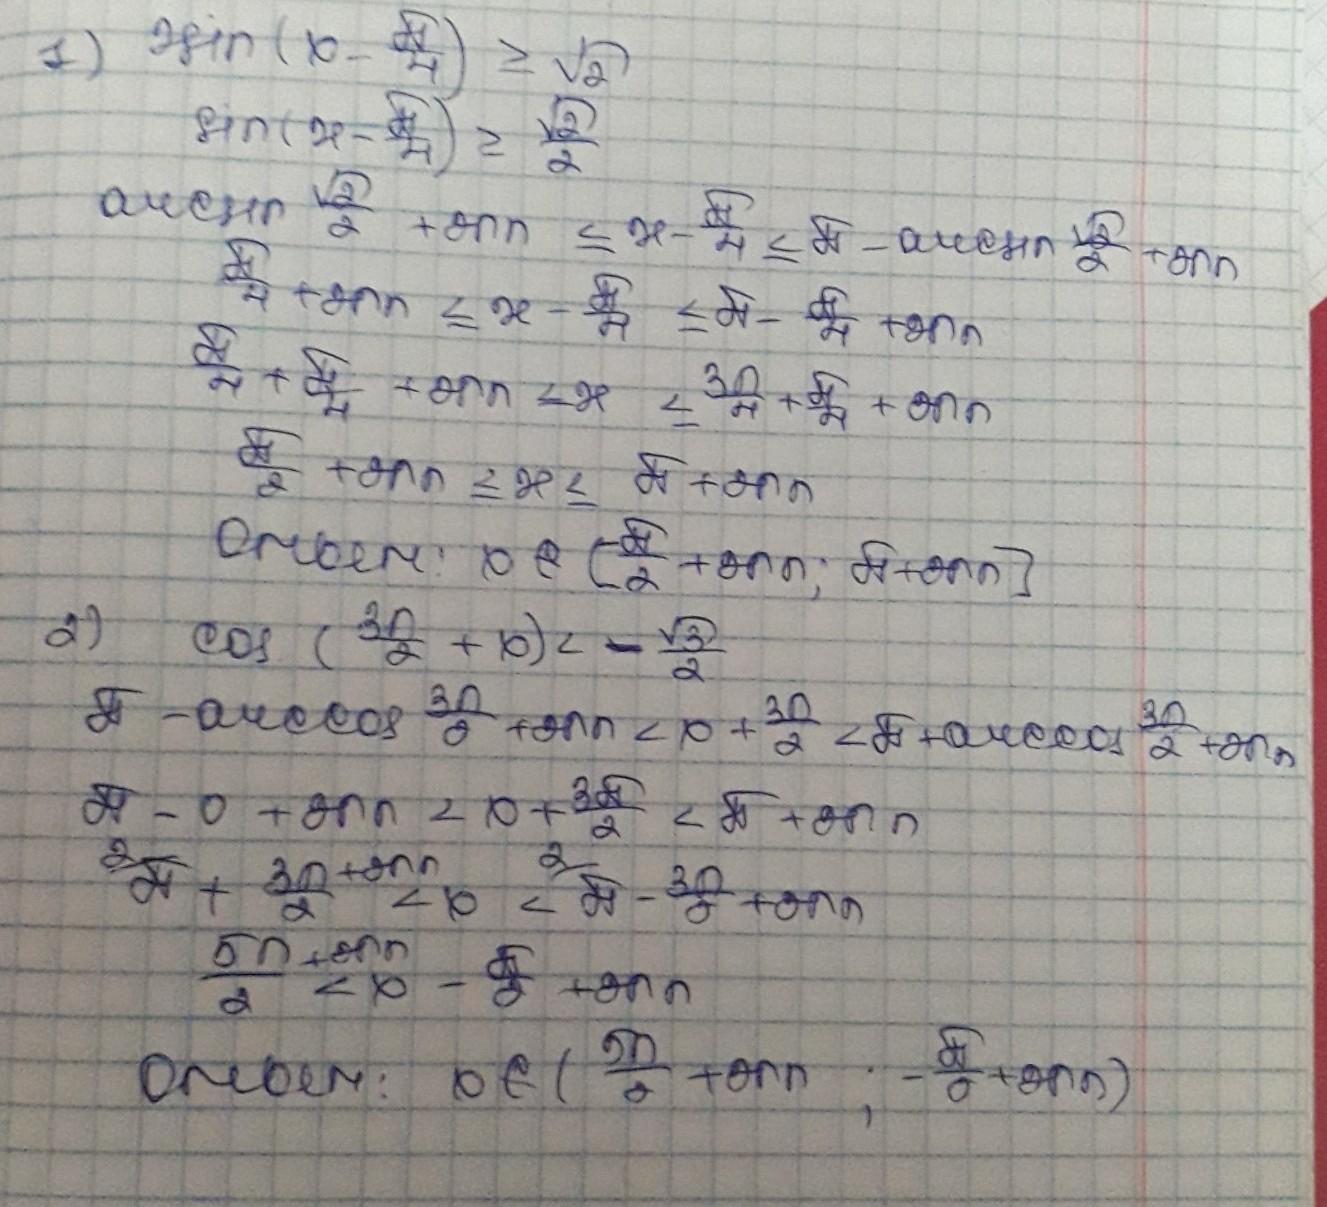 1) 2sin(x - π/4) ≥ √2
sin(x - π/4) ≥ √2/2
arcsin √2/2 + 2πn ≤ x - π/4 ≤ π - arcsin √2/2 + 2πn
π/4 + 2πn ≤ x - π/4 ≤ π - π/4 + 2πn
π/4 + π/4 + 2πn ≤ x ≤ 3π/4 + π/4 + 2πn
π/2 + 2πn ≤ x ≤ π + 2πn
Ответ: x ∈ [π/2 + 2πn; π + 2πn]
2) cos (3π/2 + x) < - √3/2
π - arccos 3π/2 + 2πn < x + 3π/2 < π + arccos 3π/2 + 2πn
π - 0 + 2πn < x + 3π/2 < π + 2πn
²π + 3π/2 + 2πn < x < ²π - 3π/2 + 2πn
5π/2 + 2πn < x - π/2 + 2πn
Ответ: x ∈ (5π/2 + 2πn ; - π/2 + 2πn)